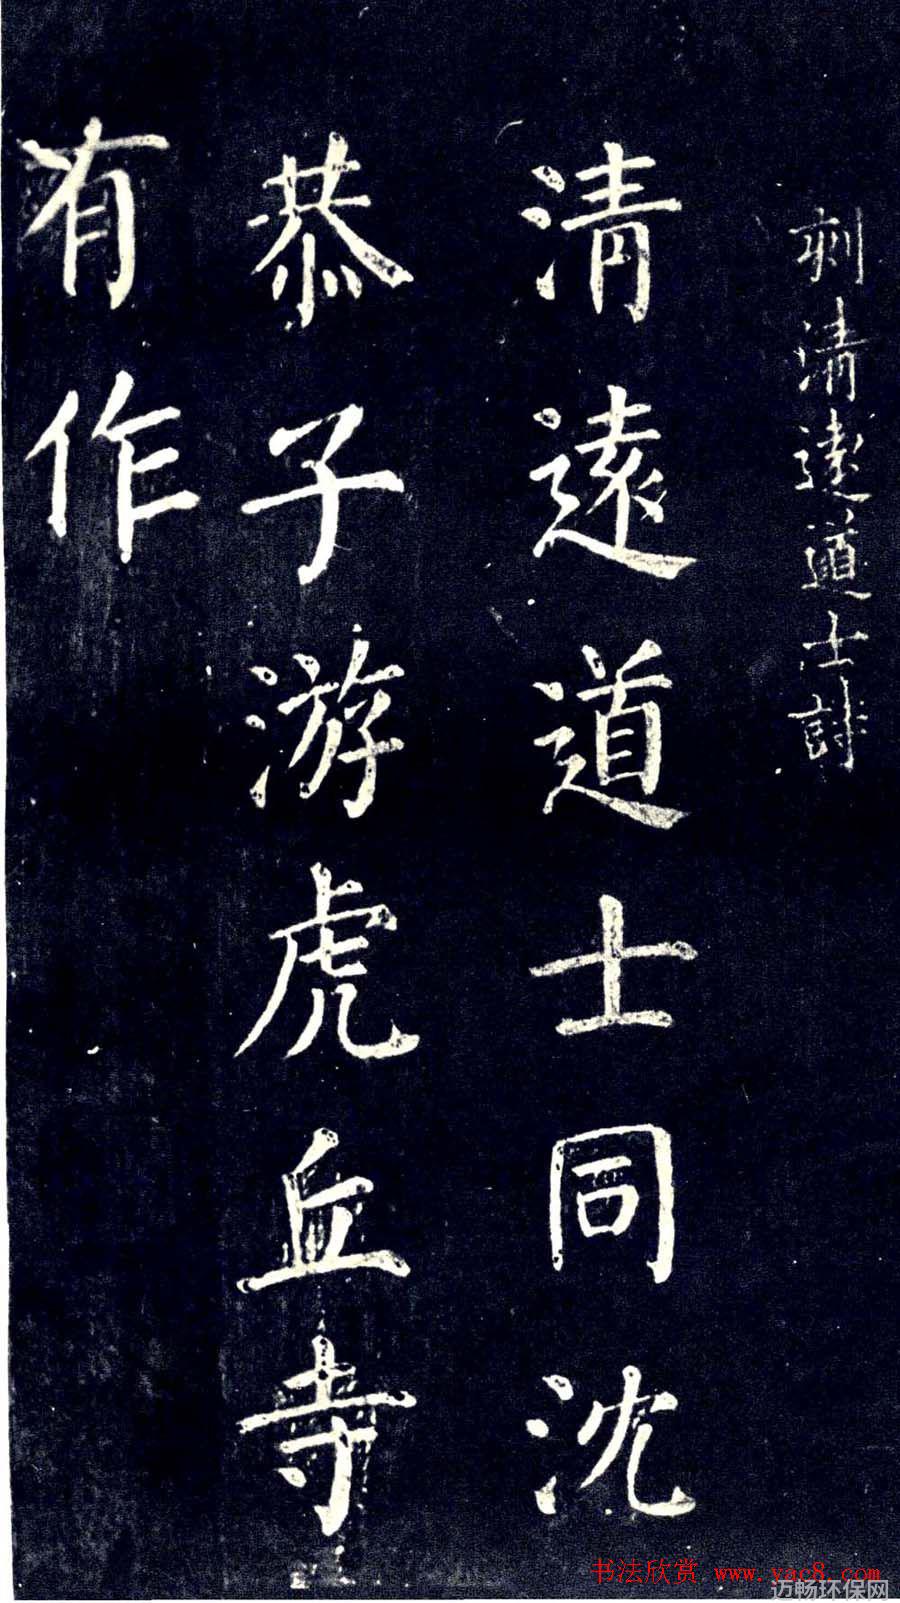 刻清遠道士詩
清遠道士同沈
恭子游虎丘寺
有作
书法欣赏 www.yac8.com
迈畅环保网